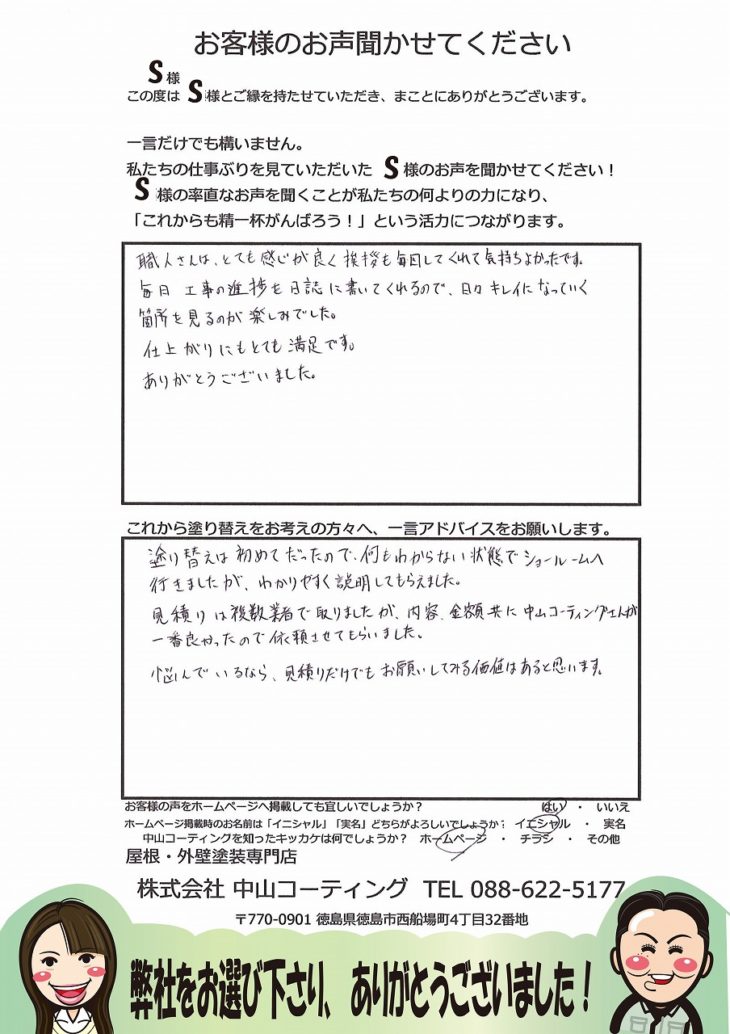 お客様のお声聞かせてください
S様
この度は S様とご縁を持たせていただき、まことにありがとうございます。
一言だけでも構いません。
私たちの仕事ぶりを見ていただいた S様のお声を聞かせてください！
S様の率直なお声を聞くことが私たちの何よりの力になり、
「これからも精一杯がんばろう！」という活力につながります。
職人さんは、とても感じが良く挨拶も毎回してくれて気持ちよかったです。
毎日 工事の進捗を日誌に書いてくれるので、日々キレイになっていく
箇所を見るのが楽しみでした。
仕上がりにもとても満足です。
ありがとうございました。
これから塗り替えをお考えの方々へ、一言アドバイスをお願いします。
塗り替えは初めてだったので、何もわからない状態でショールームへ
行きましたが、わかりやすく説明してもらえました。
見積りは複数業者で取りましたが、内容、金額共に中山コーティングさんが
一番良かったので依頼させてもらいました。
悩んでいるなら、見積りだけでもお願いしてみる価値はあると思います。
お客様の声をホームページへ掲載しても宜しいでしょうか？ はい ・ いいえ
ホームページ掲載時のお名前は「イニシャル」「実名」どちらがよろしいでしょうか： イニシャル ・ 実名
中山コーティングを知ったキッカケは何でしょうか？ ホームページ ・ チラシ ・ その他
屋根・外壁塗装専門店
株式会社 中山コーティング TEL 088-622-5177
〒770-0901 徳島県徳島市西船場町4丁目32番地
弊社をお選び下さり、ありがとうございました！